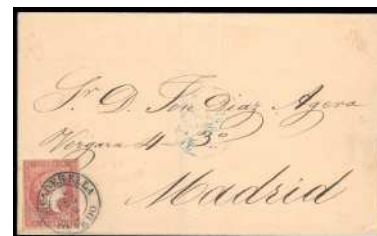 Sr. D. José Diaz Agero
Vergara 4 - 3º
Madrid